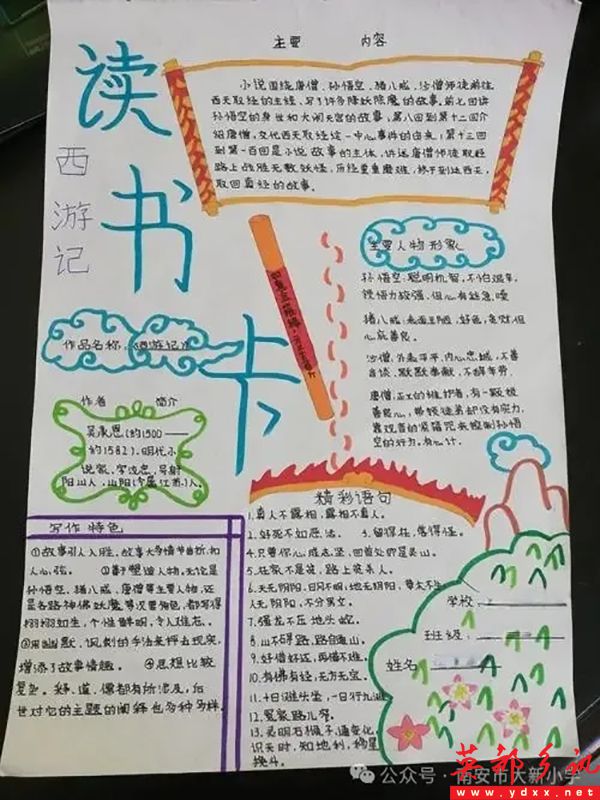 读书卡
西游记
主要 内容
小说围绕唐僧、孙悟空、猪八戒、沙僧师徒前往
西天取经的主线，写了许多降妖除魔的故事，前七回讲
孙悟空的身世和大闹天宫的故事，第八回到第十二回介
绍唐僧，交代西天取经这一中心事件的由来；第十三回
到第一百回是小说故事的主体，讲述唐僧师徒取经
路上战胜无数妖怪，历经重重磨难，终于到达西天，
取回真经的故事。
主要人物形象
孙悟空：聪明机智，不怕艰辛，
领悟力较强，但心有些急，
猪八戒：表面
心底善良。
沙僧：外表平平，内心忠诚，不善
言谈，默默奉献，不辞辛劳。
唐僧：正义的维护者，有一颗极
善良心，带领徒弟却没有实力，
靠观音的紧箍咒来控制孙悟
空的行为，有心计。
作品名称：《西游记》
作者 简介
吴承恩（约1500——
约1582），明代小
说家，字汝忠，号射
阳山人，山阳（今属江苏）人。
写作特色
①故事引人入胜，故事大多情节曲折，扣
人心弦。 ②善于塑造人物，无论是
孙悟空，猪八戒，唐僧等主要人物，还
是各路神佛妖魔等次要角色，都写得
栩栩如生，个性鲜明，令人难忘。
③用幽默、讽刺的手法来抨击现实，
增添了故事情趣。 ④思想比较
复杂。释、道、儒都有所涉及，后
世对它的主题的阐释也多种多样。
精彩语句
1.真人不露相，露相不真人。
2.好死不如恶活。 3.留得在，落得怪。
4.只要你心诚志坚，回首处即是灵山。
5.在家不是贫，路上贫杀人。
6.天无阴阳，日月不明；地无阴阳，草木不生；
人无阴阳，不分男女。
7.强龙不压地头蛇。
8.山不碍路，路自通山。
9.好借好还，再借不难。
10.有佛有经，无方无宝。
11.十日滩头坐，一日行九滩。
12.冤家路儿窄。
13.灵明石猴，通变化，
识天时，知地利，移星
换斗。
学校：
班级：
姓名
公众号·南安市大新小学
英都乡讯
www.ydxx.net